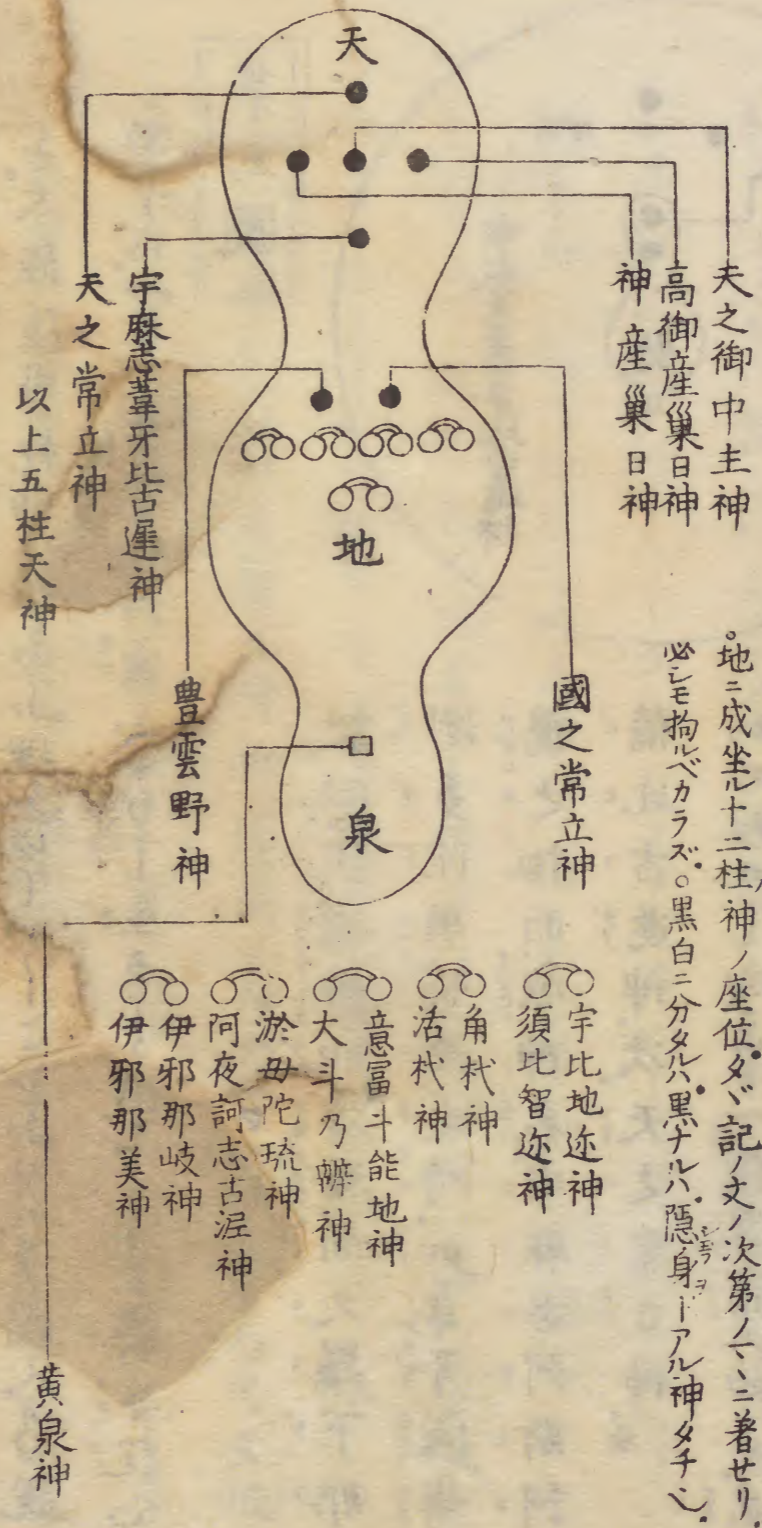 天
地
泉
天之御中主神
高御産巣日神
神産巣日神
宇麻志葦牙比古遅神
天之常立神
以上五柱天神
國之常立神
豊雲野神
。地ニ成坐ル十二柱ノ神ノ座位タヾ記ノ文ノ次第ノマヽニ着セリ
必シモ拘ルベカラズ。○黒白ニ分タルハ黒ナルハ隠身トアル神タチ也
宇比地迩神
須比智迩神
角杙神
活杙神
意冨斗能地神
大斗乃辨神
淤母陀琉神
阿夜訶志古泥神
伊邪那岐神
伊邪那美神
黄泉神